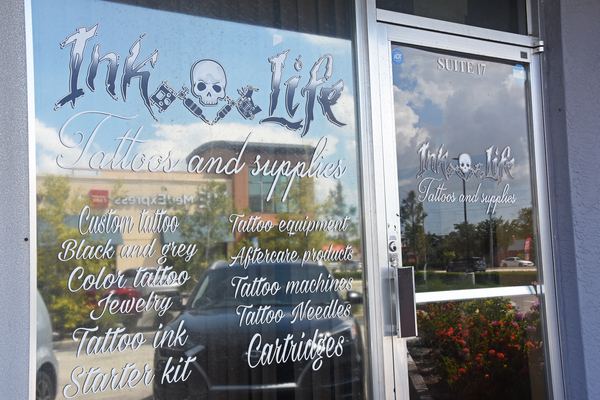 Ink Life
Tattoos and supplies
Custom tattoo
Black and grey
Color tattoo
Jewelry
Tattoo ink
Starter kit
Tattoo equipment
Aftercare products
Tattoo machines
Tattoo Needles
Cartridges
SUITE 17
Ink Life
Tattoos and supplies
MedExpress